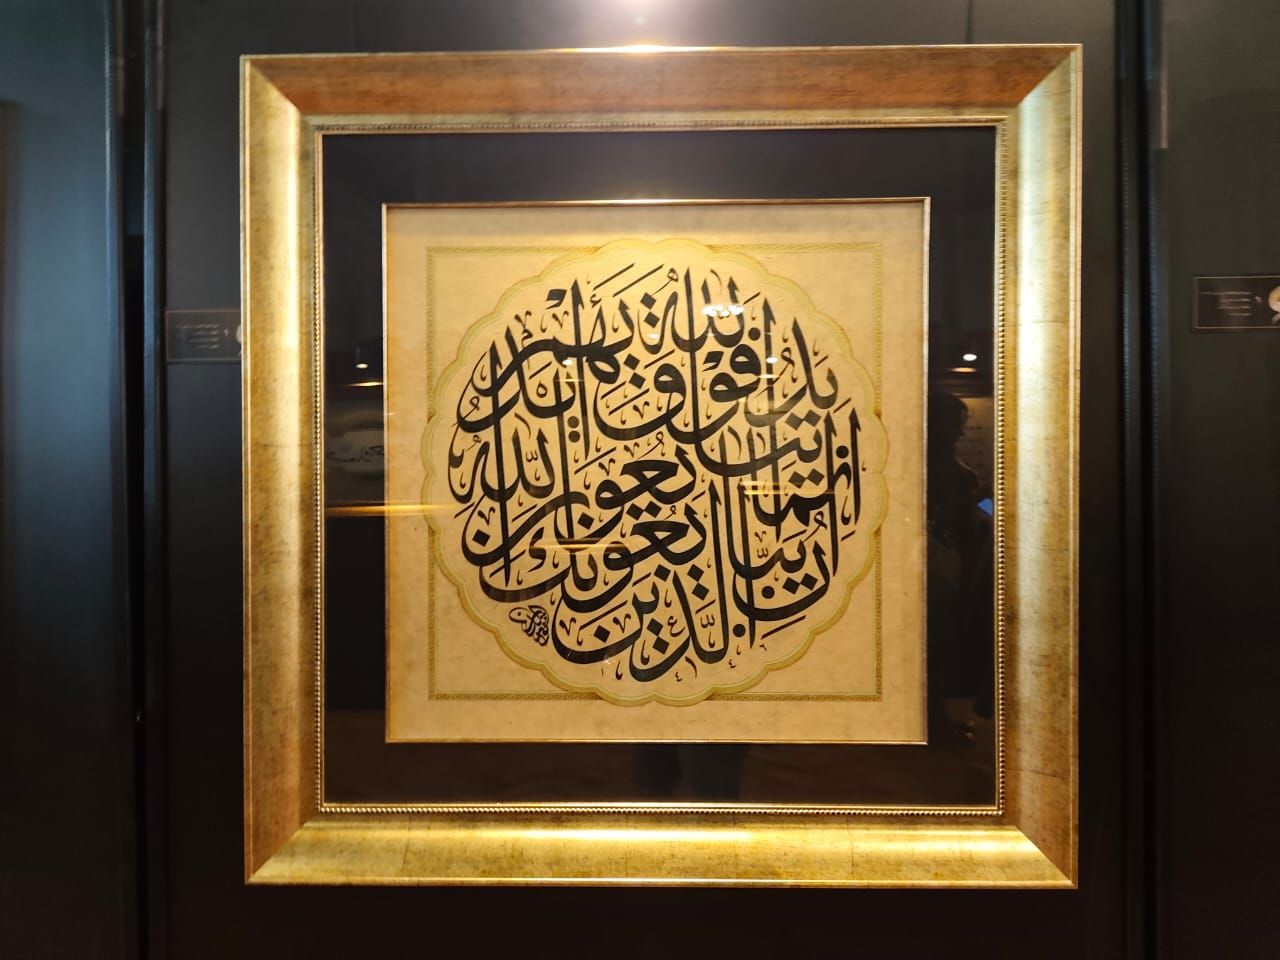 إن الذين يبايعونك إنما يبايعون الله يد الله فوق أيديهم